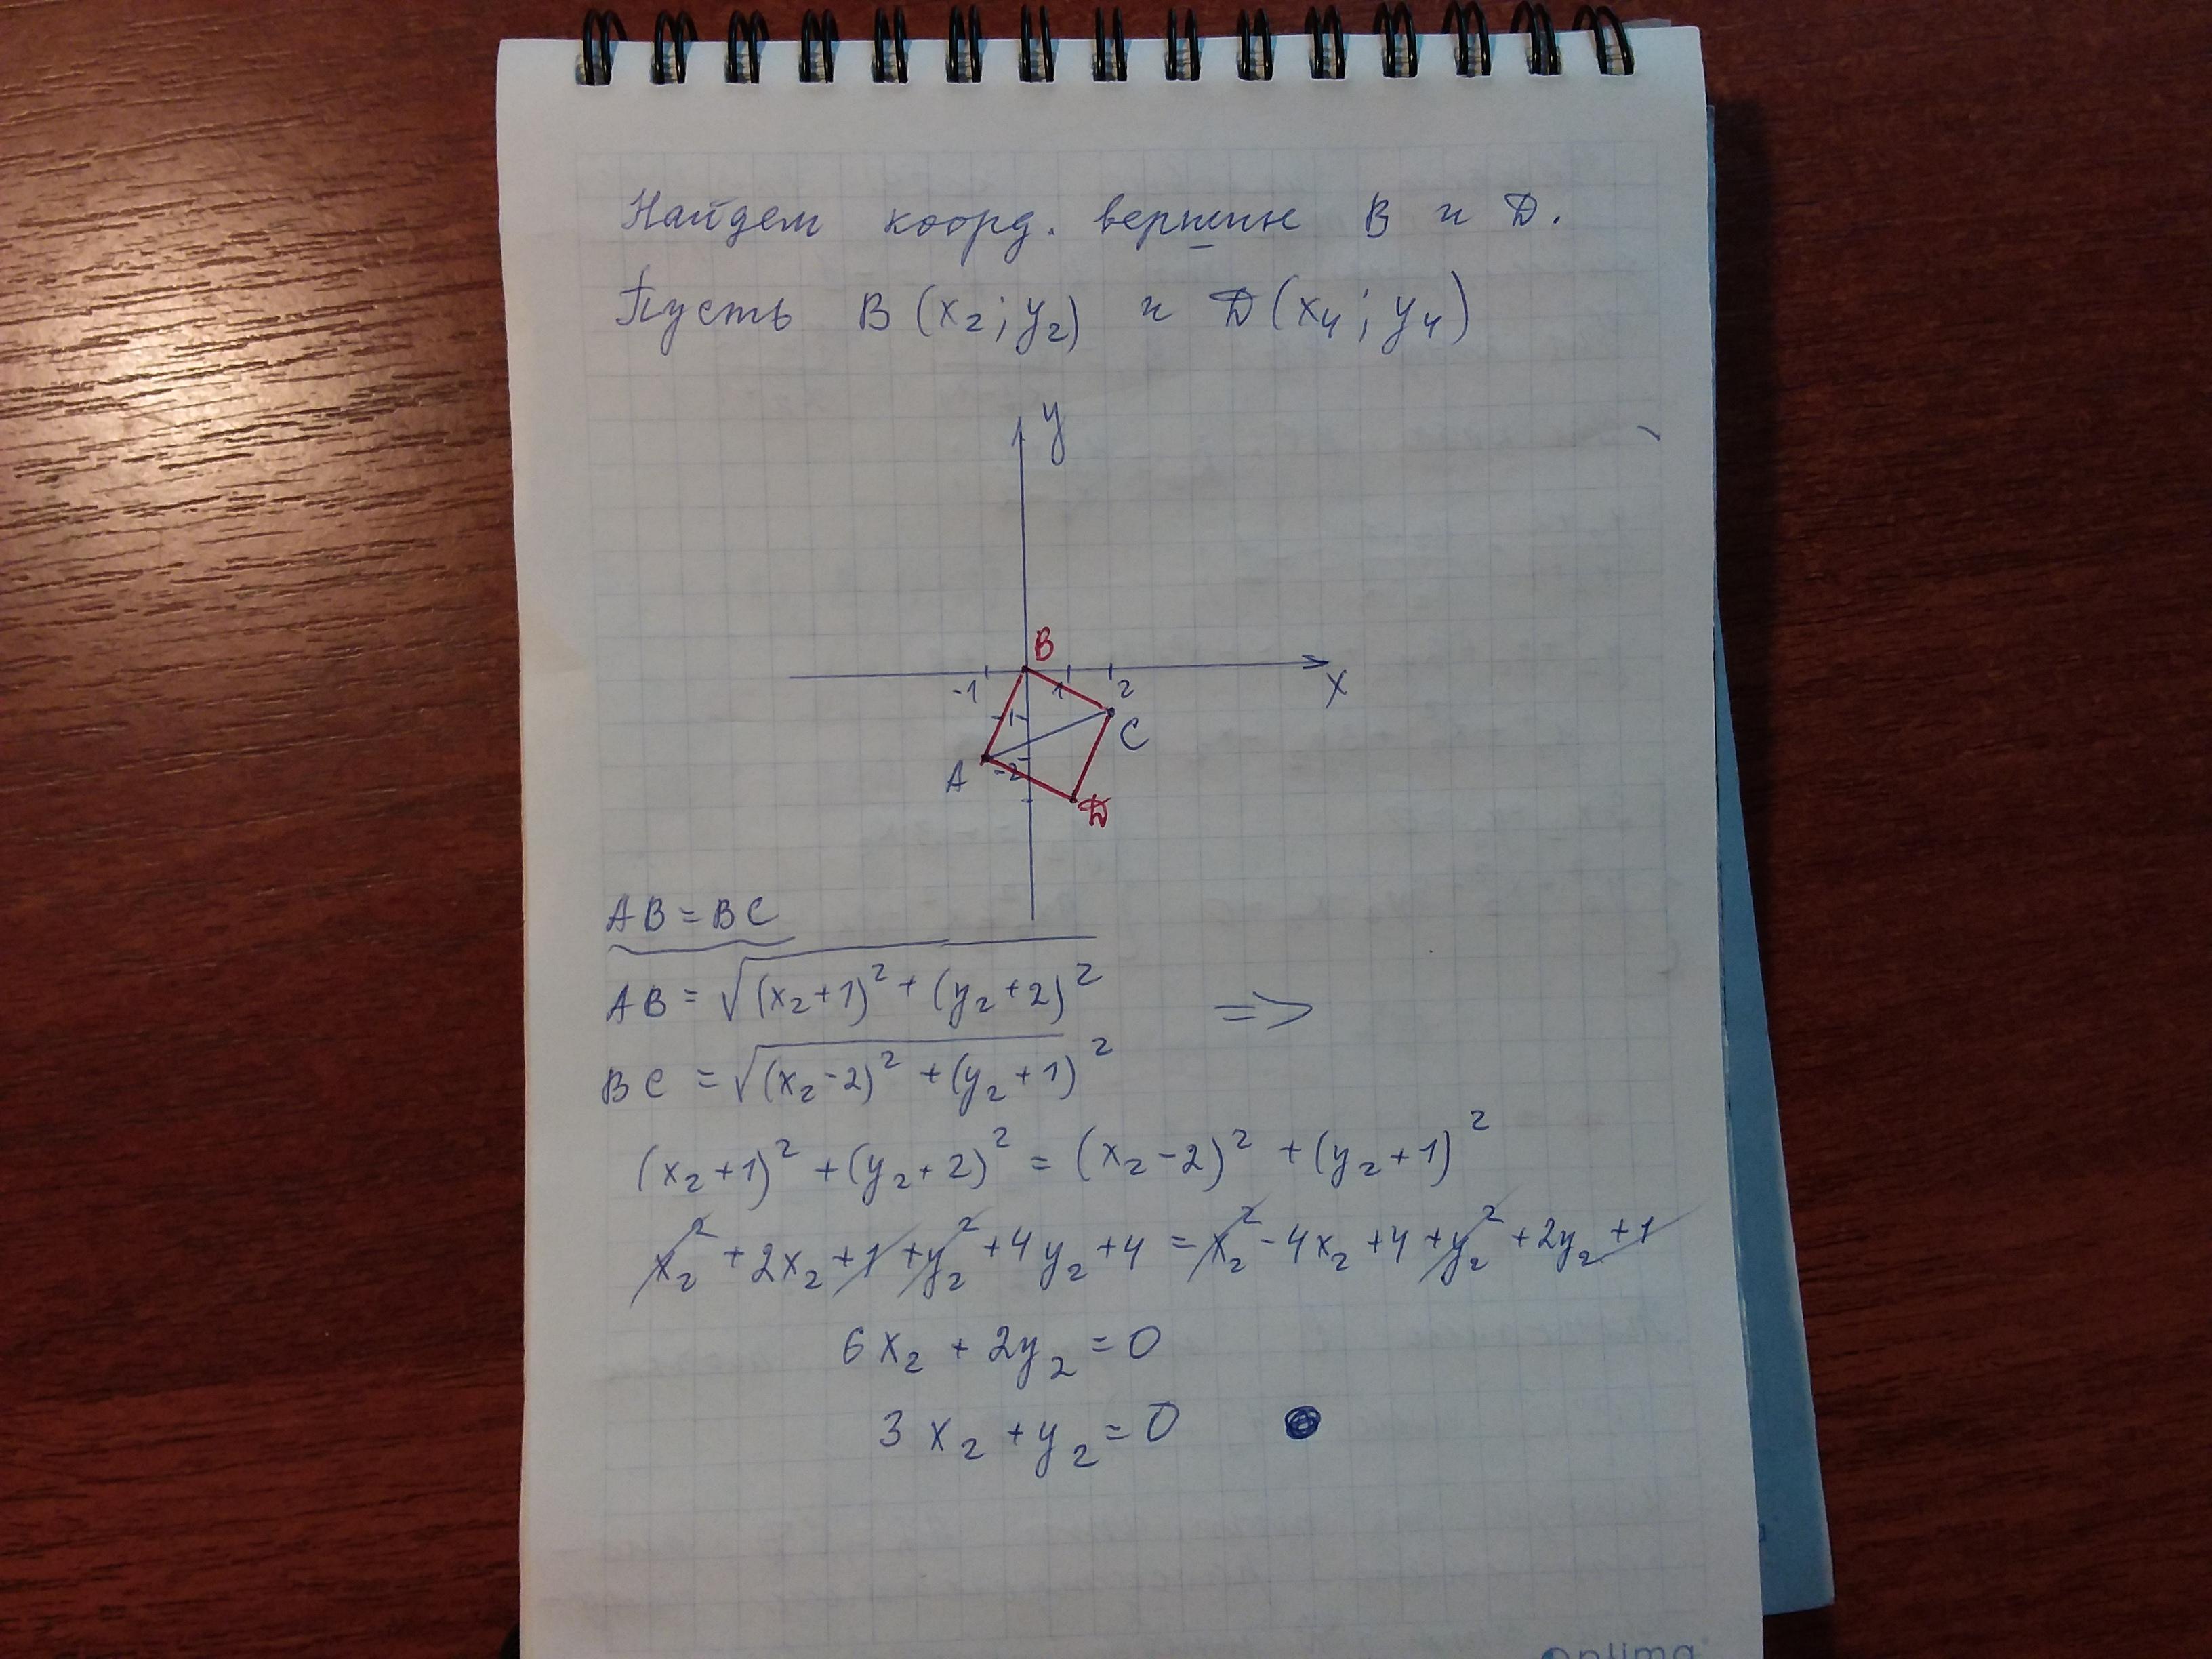 Найдем коорд. вершин B и D.
Пусть B (x₂; y₂) и D (x₄; y₄)
y
B
-1 1 2
x
-1
C
A -2
D
AB = BC
AB = √((x₂+1)² + (y₂+2)²) =>
BC = √((x₂-2)² + (y₂+1)²)
(x₂+1)² + (y₂+2)² = (x₂-2)² + (y₂+1)²
x₂² + 2x₂ + 1 + y₂² + 4y₂ + 4 = x₂² - 4x₂ + 4 + y₂² + 2y₂ + 1
6x₂ + 2y₂ = 0
3x₂ + y₂ = 0
Optima